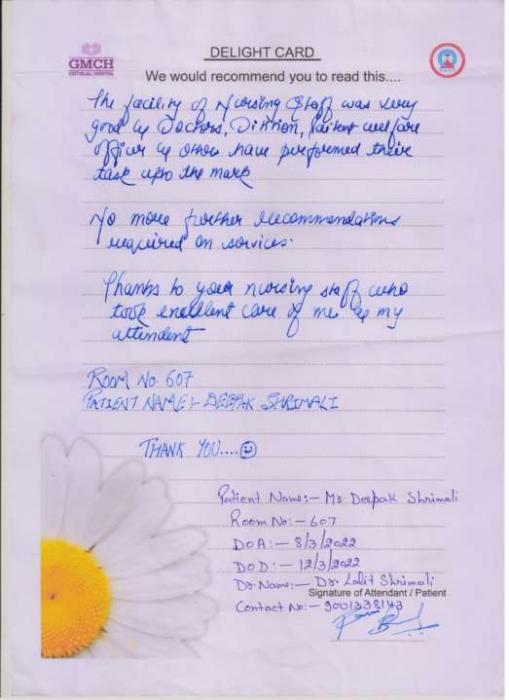 GMCH
DELIGHT CARD
We would recommend you to read this....
The facility of Nursing Staff was very
good & Doctors, Dietion, Patient welfare
officer & other have performed their
task upto the mark
No more further recommendations
required on services.
Thanks to your nursing staff who
took excellent care of me & my
attendent
ROOM No 607
PATIENT NAME:- DEEPAK SHRIMALI
THANK YOU....
Patient Name:- Mr Deepak Shrimali
Room No:- 607
DOA:- 8/3/2022
DOD:- 12/3/2022
Dr. Name:- Dr. Lalit Shrimali
Signature of Attendant / Patient
Contact No:- 9001338143